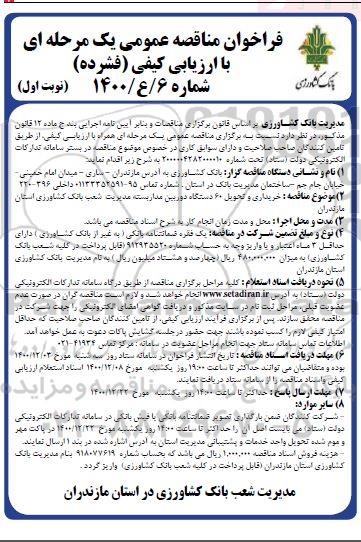 فراخوان مناقصه عمومی یک مرحله ای
با ارزیابی کیفی (فشرده)
شماره ۱۴۰۰/ع/۶
(نوبت اول)
بانک کشاورزی
مدیریت بانک کشاورزی بر اساس قانون برگزاری مناقصات و بنابر آیین نامه اجرایی بند ج ماده ۱۲ قانون
مذکور، در نظر دارد نسبت به برگزاری مناقصه عمومی یک مرحله ای همراه با ارزیابی کیفی، از طریق
تامین کنندگان صاحب صلاحیت و دارای سوابق کاری در خصوص موضوع مناقصه در بستر سامانه تدارکات
الکترونیکی دولت (ستاد) تحت شماره به شرح زیر اقدام نمایند:
۱) نام و نشانی دستگاه مناقصه گزار: بانک کشاورزی به آدرس مازندران - ساری - میدان امام خمینی -
خیابان جام جم - ساختمان مدیریت بانک در استان. شماره تماس داخلی
۲) موضوع مناقصه: خریداری و تحویل ۶۰ دستگاه دوربین مداربسته مدیریت شعب بانک کشاورزی استان
مازندران
۳) مدت و محل اجرا: محل و مدت زمان انجام کار به شرح اسناد مناقصه می باشد.
۴) نوع و مبلغ تضمین شرکت در مناقصه: یک فقره ضمانتنامه بانکی (به غیر از بانک کشاورزی) دارای
حداقل ۳ ماه اعتبار و یا واریز وجه به حساب شماره (قابل پرداخت در کلیه شعب بانک
کشاورزی) به میزان ۴۸۰،۰۰۰،۰۰۰ ریال (چهارصد و هشتاد میلیون ریال) به نام مدیریت بانک کشاورزی
استان مازندران
۵) نحوه دریافت اسناد استعلام: کلیه مراحل برگزاری مناقصه از طریق درگاه سامانه تدارکات الکترونیکی
دولت (ستاد) به آدرس www.setadiran.ir انجام خواهد شد و لازم است مناقصه گران در صورت عدم
عضویت قبلی، مراحل ثبت نام در سایت مذکور و دریافت گواهی امضای الکترونیکی را جهت شرکت در
مناقصه محقق سازند. پس از برگزاری فرآیند ارزیابی کیفی، از تامین کنندگان صاحب صلاحیت که حداقل
امتیاز کیفی لازم را کسب نموده باشند جهت حضور در جلسه گشایش پاکات دعوت به عمل خواهد آمد.
اطلاعات تماس سامانه ستاد جهت انجام مراحل عضویت در سامانه: مرکز تماس ۴۱۹۳۴-۰۲۱
۶) مهلت دریافت اسناد مناقصه: تاریخ انتشار فراخوان در سامانه ستاد روز سه شنبه مورخ ۱۴۰۰/۱۲/۰۳
بوده و متقاضیان می توانند حداکثر تا ساعت ۱۹:۰۰ روز یکشنبه مورخ ۱۴۰۰/۱۲/۰۸ اسناد استعلام ارزیابی
کیفی و اسناد مناقصه را از سامانه ستاد دریافت نمایند.
۷) مهلت ارسال پاسخ: حداکثر تا ساعت ۱۴:۰۰ روز یکشنبه مورخ ۱۴۰۰/۱۲/۲۲
۸) سایر موارد:
- شرکت کنندگان ضمن بارگذاری تصویر ضمانتنامه بانکی یا فیش بانکی در سامانه تدارکات الکترونیکی
دولت (ستاد) می بایست اصل آن را حداکثر تا ساعت ۱۴:۰۰ روز یکشنبه مورخ ۱۴۰۰/۱۲/۲۲ در پاکت مهر
و موم شده تحویل واحد خدمات و پشتیبانی مدیریت استان به آدرس اشاره شده در بند ۱ ارسال نمایند.
- هزینه فروش اسناد مناقصه ۱،۰۰۰،۰۰۰ ریال می باشد که بحساب شماره ۹۱۸۰۷۷۶۱۹ بنام مدیریت بانک
کشاورزی استان مازندران (قابل پرداخت در کلیه شعب بانک کشاورزی) واریز گردد.
مدیریت شعب بانک کشاورزی در استان مازندران